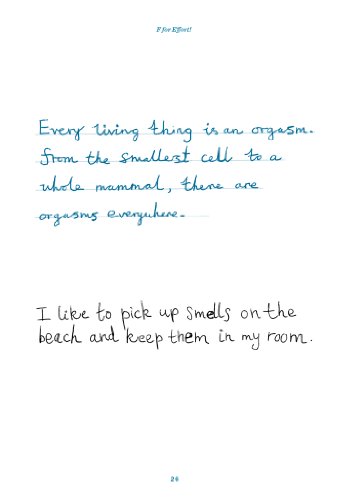 F for Effort!
Every living thing is an orgasm.
From the smallest cell to a
whole mammal, there are
orgasms everywhere.
I like to pick up smells on the
beach and keep them in my room.
26